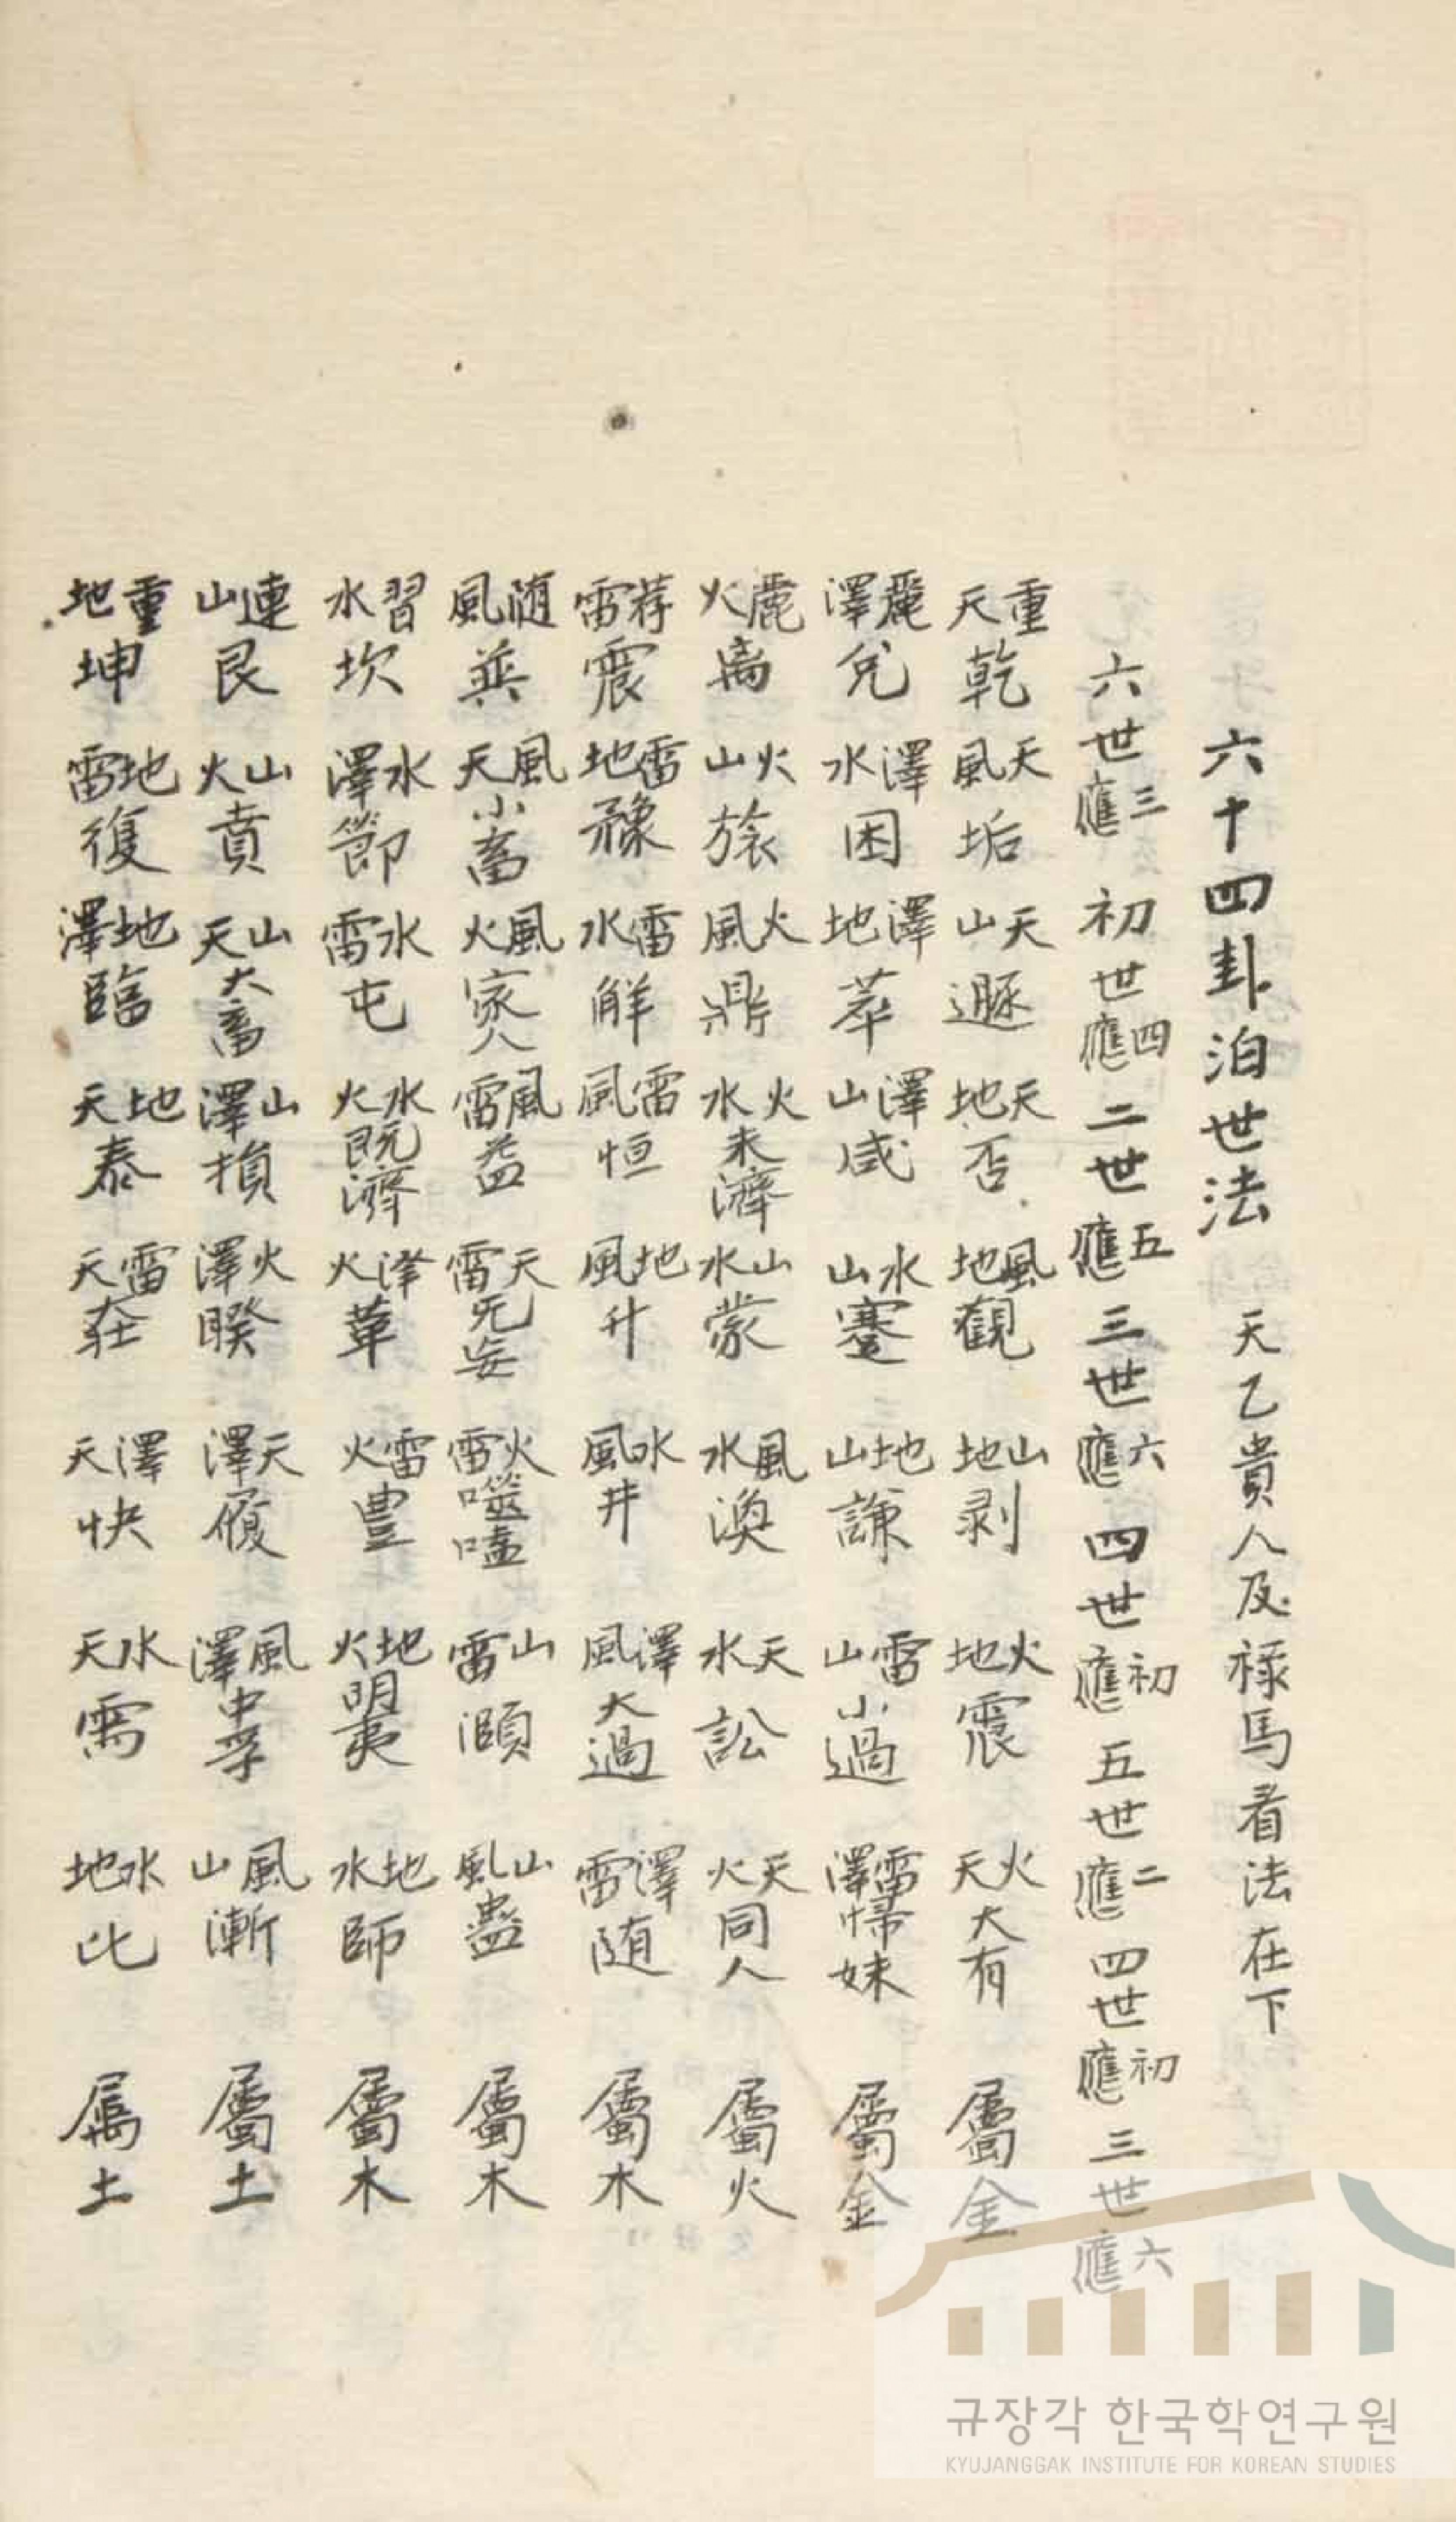 六十四卦泊世法 天乙貴人及祿馬看法在下
六世三應 初世四應 二世五應 三世六應 四世初應 五世二應 四世初應 三世六應
重天乾 天風垢 天山遯 天地否 風地觀 山地剥 火地震 火天大有 屬金
麗澤兌 澤水困 澤地萃 澤山咸 水山蹇 地山謙 雷山小過 雷澤帰妹 屬金
麗火离 火山旅 火風鼎 火水未濟 山水蒙 風水渙 天水訟 天火同人 屬火
荐雷震 雷地豫 雷水解 雷風恒 地風升 水風井 澤風大過 澤雷随 屬木
随風巽 風天小畜 風火家人 風雷益 天雷无妄 火雷噬嗑 山雷頤 山風蠱 屬木
習水坎 水澤節 水雷屯 水火既濟 澤火革 雷火豊 地火明夷 地水師 屬木
連山艮 山火賁 山天大畜 山澤損 火澤睽 天澤履 風澤中孚 風山漸 屬土
重地坤 地雷復 地澤臨 地天泰 雷天莊 澤天快 水天需 水地比 属土
규장각 한국학연구원
KYUJANGGAK INSTITUTE FOR KOREAN STUDIES